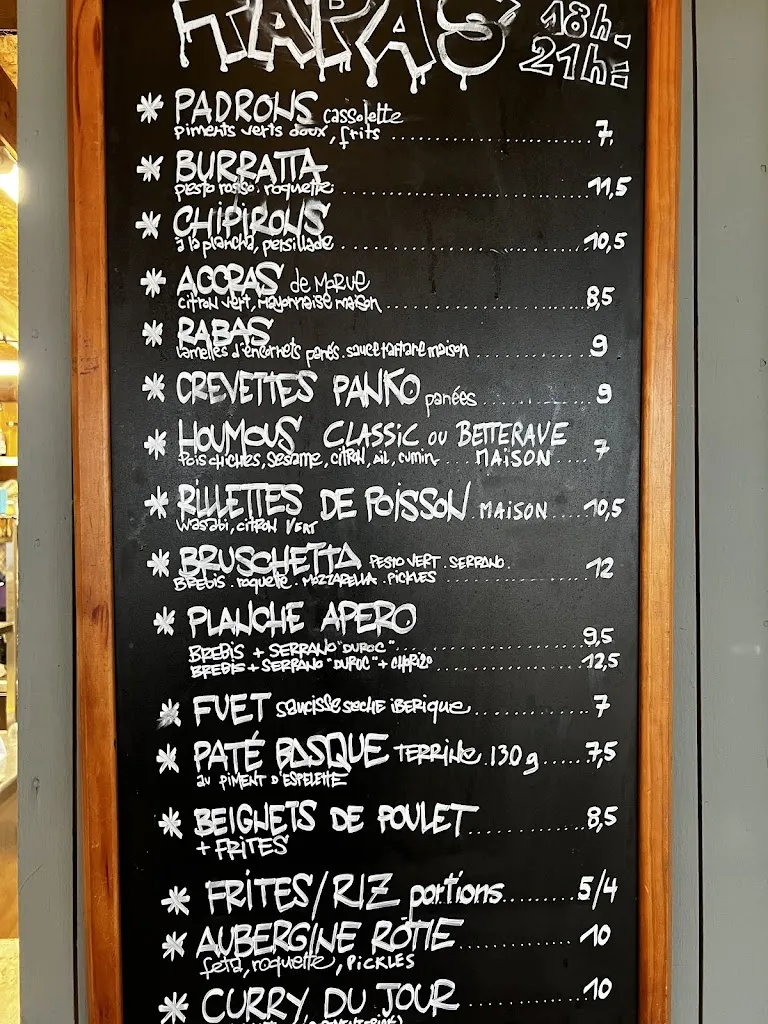 TAPAS 18h.
21h:
* PADRONS cassolette
piments verts doux, frits ........ 7,
* BURRATTA
pesto rosso. roquette ........ 11,5
* CHIPIRONS
à la plancha, persillade ........ 10,5
* ACCRAS de MORUE
citron vert, mayonnaise maison ........ 8,5
* RABAS
lamelles d'encornets panés. sauce tartare maison ........ 9
* CREVETTES PANKO panées ........ 9
* HOUMOUS CLASSIC ou BETTERAVE
Pois chiches, sesame, citron, ail, cumin .... MAISON .... 7
* RILLETTES DE POISSON MAISON .... 10,5
wasabi, citron vert
* BRUSCHETTA PESTO VERT. SERRANO.
BREBIS. roquette. MOZZARELLA. PICKLES ........ 12
* PLANCHE APERO
BREBIS + SERRANO "DUROC" ........ 9,5
BREBIS + SERRANO "DUROC" + CHORIZO ........ 12,5
* FUET saucisse seche iberique ........ 7
* PATÉ BASQUE TERRINE 130g ..... 7,5
au PIMENT D'ESPELETTE
* BEIGNETS DE POULET ........ 8,5
+ FRITES
* FRITES/RIZ portions ........ 5/4
* AUBERGINE RÔTIE ........ 10
feta, roquette, PICKLES
* CURRY DU JOUR ........ 10